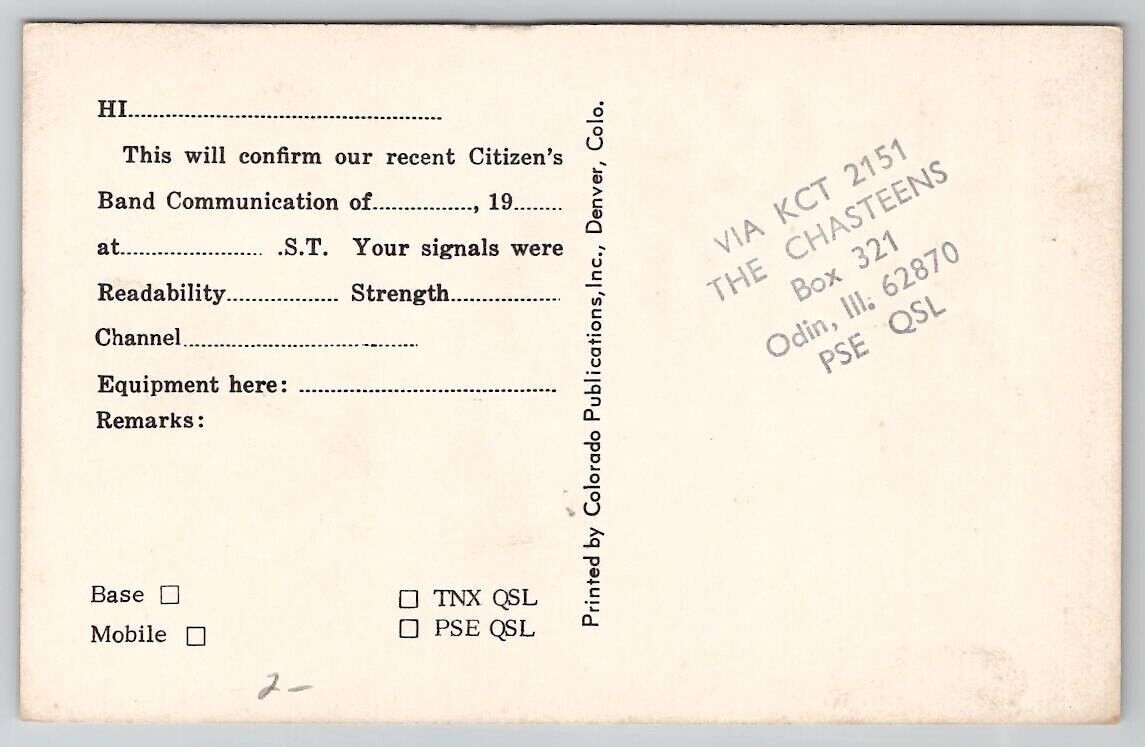 HI
This will confirm our recent Citizen's
Band Communication of..............., 19.......
at..................... .S.T. Your signals were
Readability................. Strength.................
Channel
Equipment here:
Remarks:
Base □
Mobile □
□ TNX QSL
□ PSE QSL
2-
Printed by Colorado Publications, Inc., Denver, Colo.
VIA KCT 2151
THE CHASTEENS
Box 321
Odin, Ill. 62870
PSE QSL